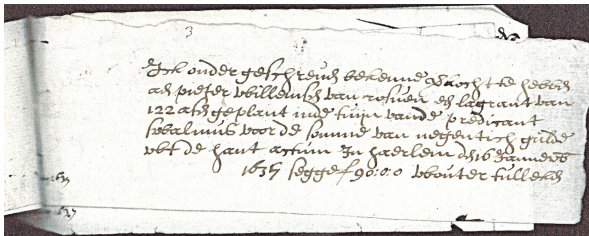 3
Ick onder geschreven bekenne vercocht te hebben
aen pieter willemsen van rosven een lagrant van
122 asen geplant inde tuin vande predicant
wbalinus voor de somme van negentich gulde
wt de hant actum In haerlem
1637 segge f 90:0:0 wouter tullekens
1637